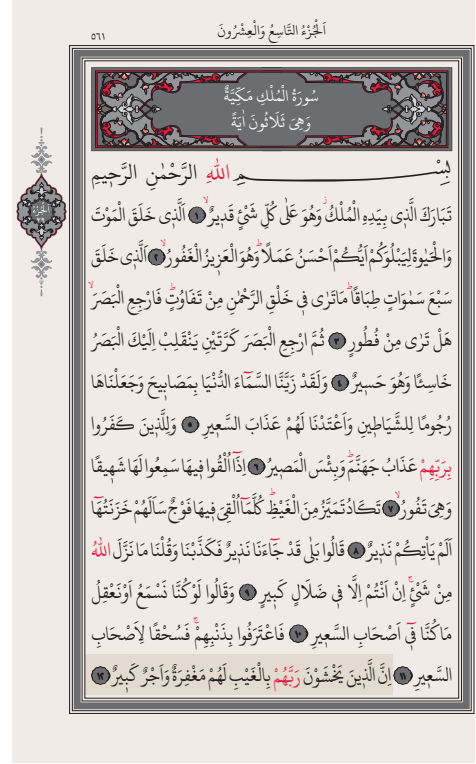 اَلْجُزْءُ التَّاسِعُ وَالْعِشْرُونَ
٥٦١
سُورَةُ الْمُلْكِ مَكِّيَّةٌ
وَهِىَ ثَلَاثُونَ اٰيَةً
بِسْمِ اللهِ الرَّحْمٰنِ الرَّحِيمِ
تَبَارَكَ الَّذِى بِيَدِهِ الْمُلْكُۘ وَهُوَ عَلٰى كُلِّ شَىْءٍ قَدِيرٌۙ ﴿١﴾ اَلَّذِى خَلَقَ الْمَوْتَ
وَالْحَيٰوةَ لِيَبْلُوَكُمْ اَيُّكُمْ اَحْسَنُ عَمَلًاۜ وَهُوَ الْعَزِيزُ الْغَفُورُۙ ﴿٢﴾ اَلَّذِى خَلَقَ
سَبْعَ سَمٰوَاتٍ طِبَاقًاۜ مَا تَرٰى فِى خَلْقِ الرَّحْمٰنِ مِنْ تَفَاوُتٍۜ فَارْجِعِ الْبَصَرَۙ
هَلْ تَرٰى مِنْ فُطُورٍ ﴿٣﴾ ثُمَّ ارْجِعِ الْبَصَرَ كَرَّتَيْنِ يَنْقَلِبْ اِلَيْكَ الْبَصَرُ
خَاسِئًا وَهُوَ حَسِيرٌ ﴿٤﴾ وَلَقَدْ زَيَّنَّا السَّمَٓاءَ الدُّنْيَا بِمَصَابِيحَ وَجَعَلْنَاهَا
رُجُومًا لِلشَّيَاطِينِ وَاَعْتَدْنَا لَهُمْ عَذَابَ السَّعِيرِ ﴿٥﴾ وَلِلَّذِينَ كَفَرُوا
بِرَبِّهِمْ عَذَابُ جَهَنَّمَۜ وَبِئْسَ الْمَصِيرُ ﴿٦﴾ اِذَٓا اُلْقُوا فِيهَا سَمِعُوا لَهَا شَهِيقًا
وَهِىَ تَفُورُۙ ﴿٧﴾ تَكَادُ تَمَيَّزُ مِنَ الْغَيْظِۜ كُلَّمَٓا اُلْقِىَ فِيهَا فَوْجٌ سَاَلَهُمْ خَزَنَتُهَٓا
اَلَمْ يَاْتِكُمْ نَذِيرٌ ﴿٨﴾ قَالُوا بَلٰى قَدْ جَٓاءَنَا نَذِيرٌ فَكَذَّبْنَا وَقُلْنَا مَا نَزَّلَ اللهُ
مِنْ شَىْءٍۚ اِنْ اَنْتُمْ اِلَّا فِى ضَلَالٍ كَبِيرٍ ﴿٩﴾ وَقَالُوا لَوْ كُنَّا نَسْمَعُ اَوْ نَعْقِلُ
مَا كُنَّا فِٓى اَصْحَابِ السَّعِيرِ ﴿١٠﴾ فَاعْتَرَفُوا بِذَنْبِهِمْۚ فَسُحْقًا لِاَصْحَابِ
السَّعِيرِ ﴿١١﴾ اِنَّ الَّذِينَ يَخْشَوْنَ رَبَّهُمْ بِالْغَيْبِ لَهُمْ مَغْفِرَةٌ وَاَجْرٌ كَبِيرٌ ﴿١٢﴾